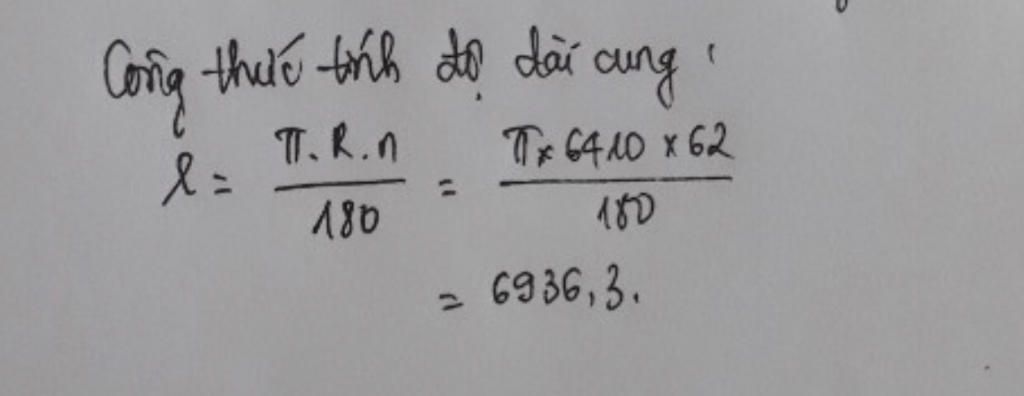 Công thức tính độ dài cung:
l = π.R.n / 180 = π × 6410 × 62 / 180
= 6936,3.